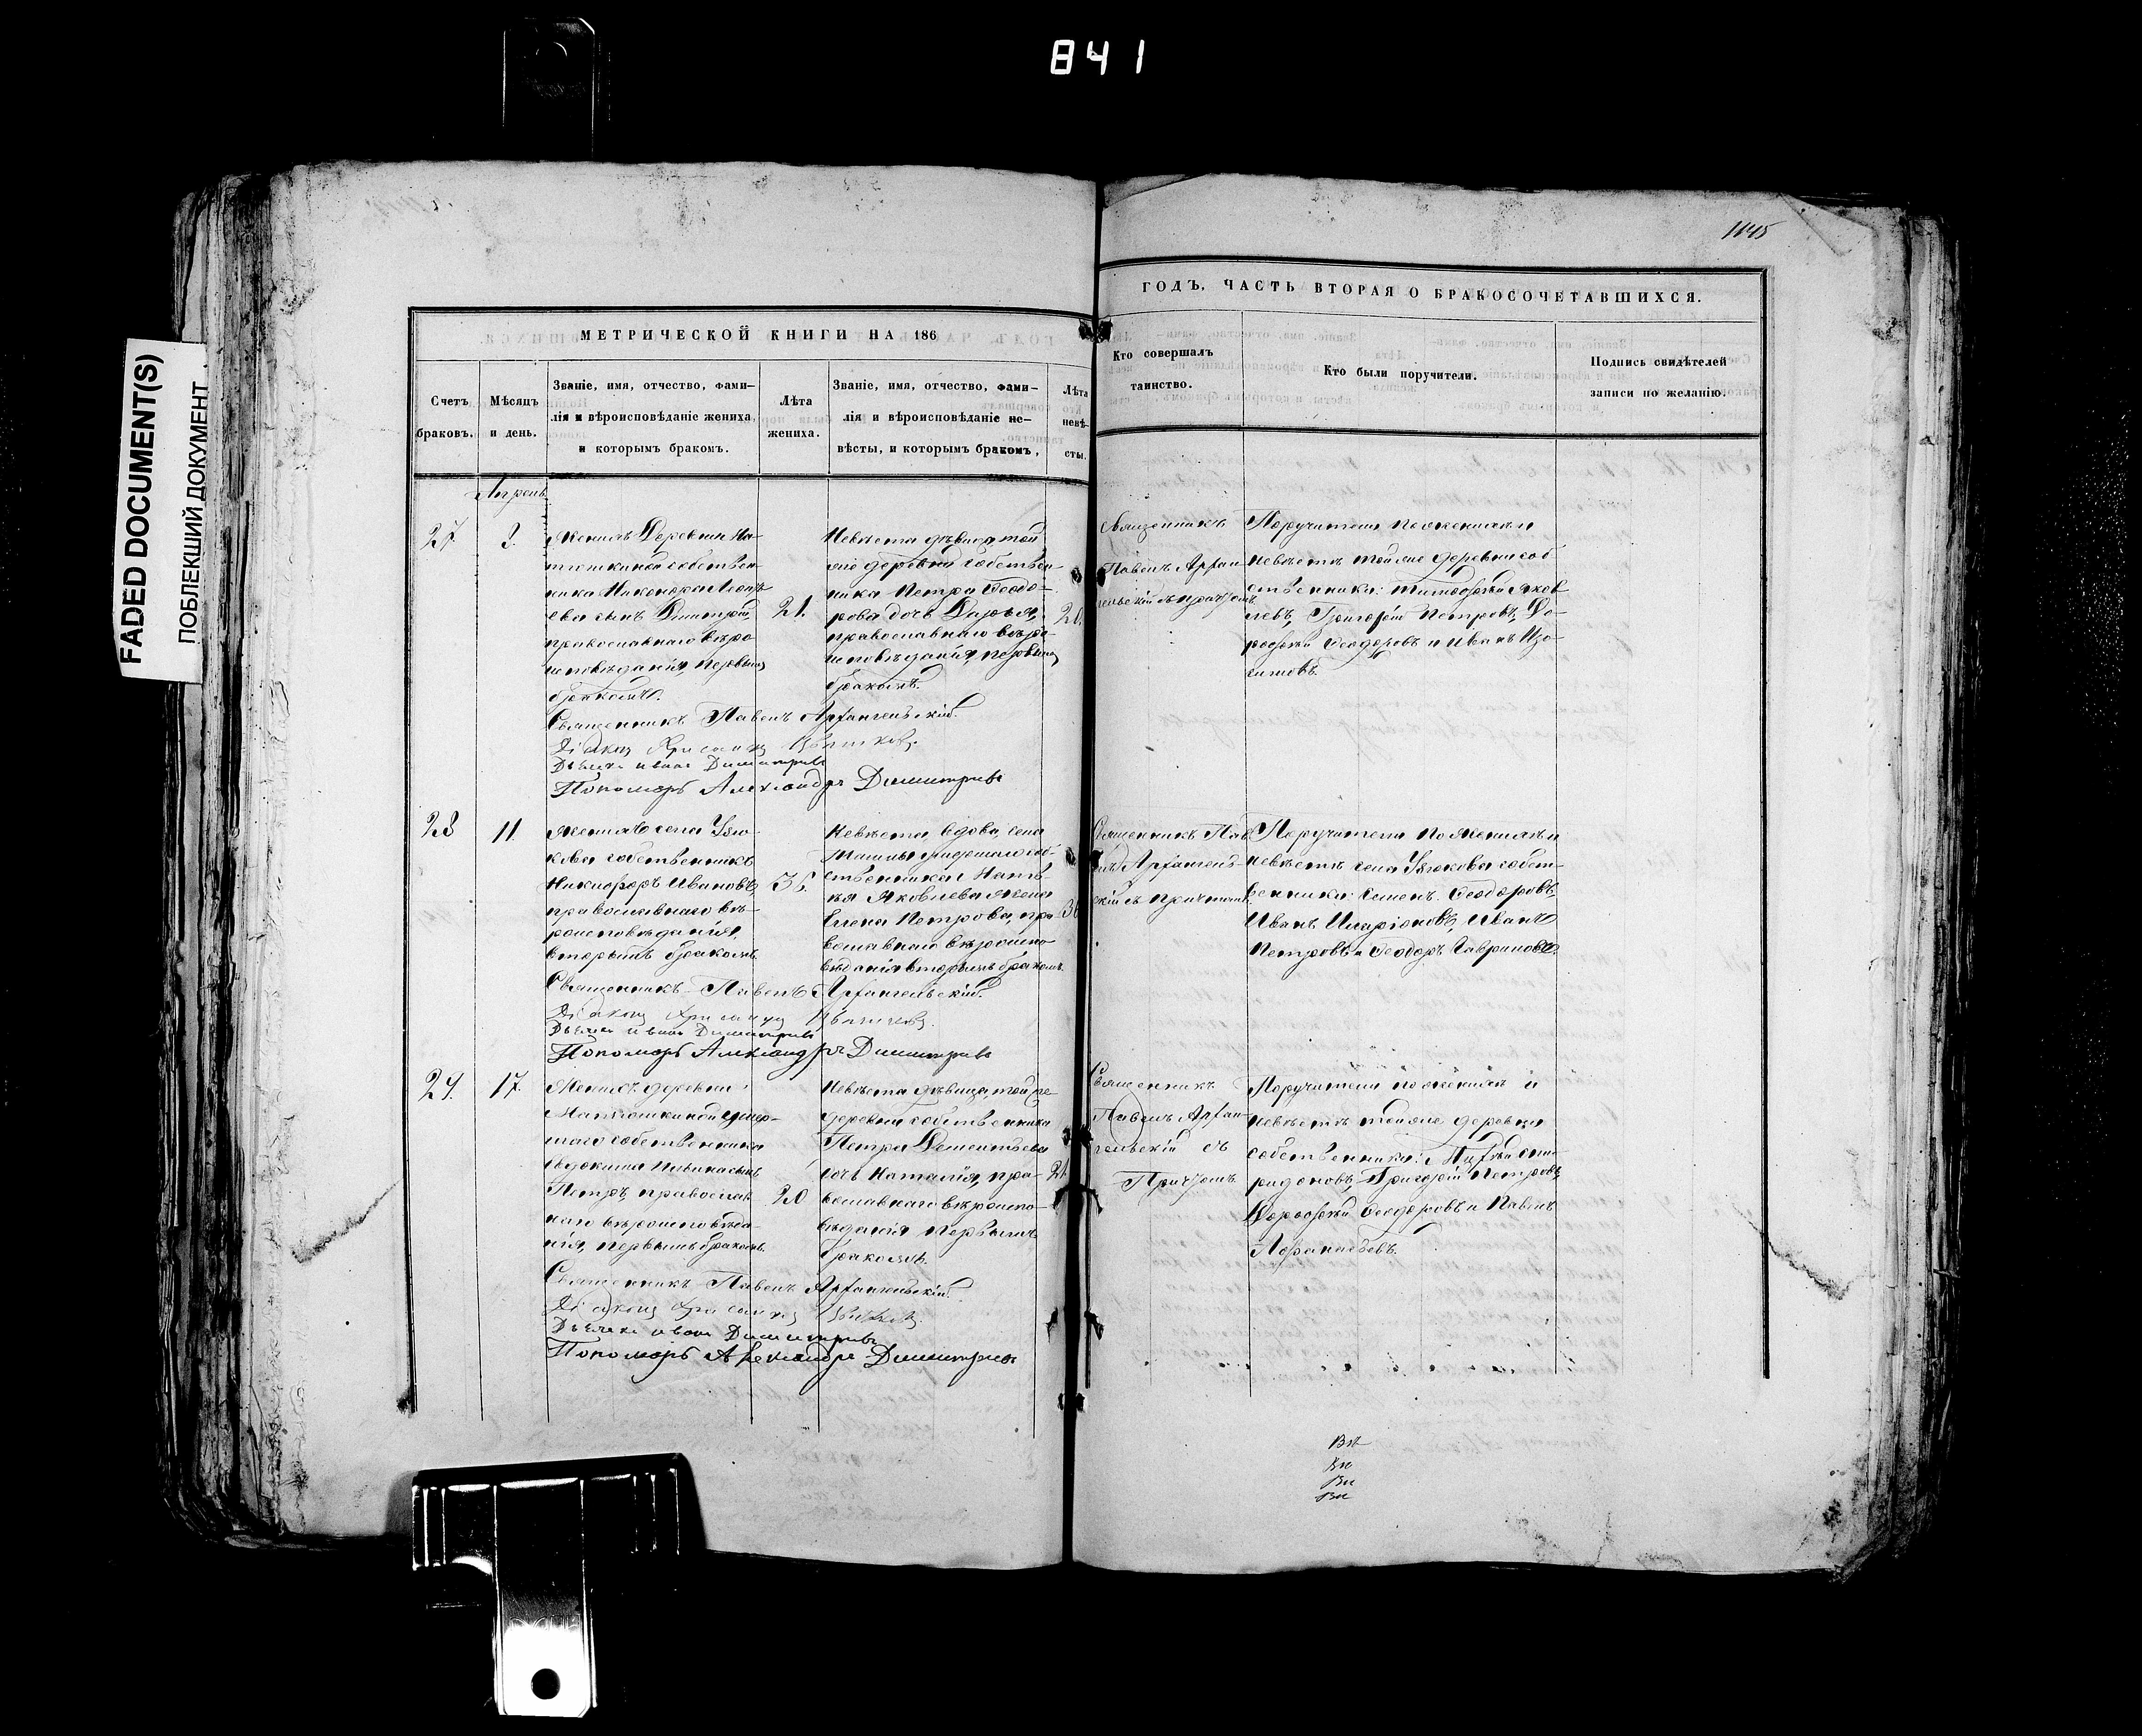 841
FADED DOCUMENT(S)
ПОБЛЕКШИЙ ДОКУМЕНТ
1145
МЕТРИЧЕСКОЙ КНИГИ НА 186
Счетъ браковъ.
Мѣсяцъ и день.
Званіе, имя, отчество, фами-
лія и вѣроисповѣданіе жениха,
и которымъ бракомъ.
Лѣта
жениха.
Званіе, имя, отчество, фами-
лія и вѣроисповѣданіе не-
вѣсты, и которымъ бракомъ,
Лѣта
невѣ-
сты.
ГОДЪ, ЧАСТЬ ВТОРАЯ О БРАКОСОЧЕТАВШИХСЯ.
Кто совершалъ
таинство.
Кто были поручители.
Подпись свидѣтелей
записи по желанію.
Апрель
27.
Женихъ Деревни
собствен-
ника
сынъ Димитрій,
православнаго вѣро
исповѣданія, первымъ
бракомъ.
21.
Невѣста дѣвица той
же деревни собствен-
ника Петра Ѳеодо-
рова дочь Дарья,
православнаго вѣро-
исповѣданія, первымъ
бракомъ.
20.
Священникъ
Павелъ Архан
гельскій съ причтомъ
Поручители по женихѣ и
невѣстѣ тойже деревни соб
ственники: Тимоѳей Яков
левъ, Григорій Петровъ, До-
роѳей Ѳеодоровъ и Иванъ Изо-
симовъ.
Священникъ Павелъ Архангельскій.
Діаконъ
Дьячекъ Иванъ Димитріевъ
Пономарь Александръ Димитріевъ
28
11.
Женихъ села Узю-
кова собственникъ
Никифоръ Ивановъ,
православнаго вѣ-
роисповѣданія,
вторымъ бракомъ.
36.
Невѣста вдова, села
умершаго соб-
ственника
Яковлева жена
Елена Петрова, пра-
вославнаго вѣроиспо
вѣданія вторымъ бракомъ.
Священникъ Пав
елъ Архангель-
скій съ причтомъ
Поручители по женихѣ и
невѣстѣ села Узюкова собст-
венники: Семенъ Ѳеодоровъ,
Иванъ Иларіоновъ, Иванъ
Петровъ и Ѳеодоръ Гавриловъ.
Священникъ Павелъ Архангельскій.
Діаконъ
Дьячекъ Иванъ Димитріевъ
Пономарь Александръ Димитріевъ
29.
17.
Женихъ деревни
умер-
шаго собственника
сынъ
Петръ, православ
наго вѣроисповѣда-
нія, первымъ бракомъ.
20
Невѣста дѣвица, той же
деревни собственника
Петра Дементьева
дочь Наталія, пра-
вославнаго вѣроиспо-
вѣданія первымъ
бракомъ.
21.
Священникъ
Павелъ Архан-
гельскій съ
Причтомъ
Поручители по женихѣ и
невѣстѣ тойже деревни
собственники:
Григорій Петровъ,
Дороѳей Ѳеодоровъ и Павелъ
Аѳанасьевъ.
Священникъ Павелъ Архангельскій.
Діаконъ
Дьячекъ Иванъ Димитріевъ
Пономарь Александръ Димитріевъ